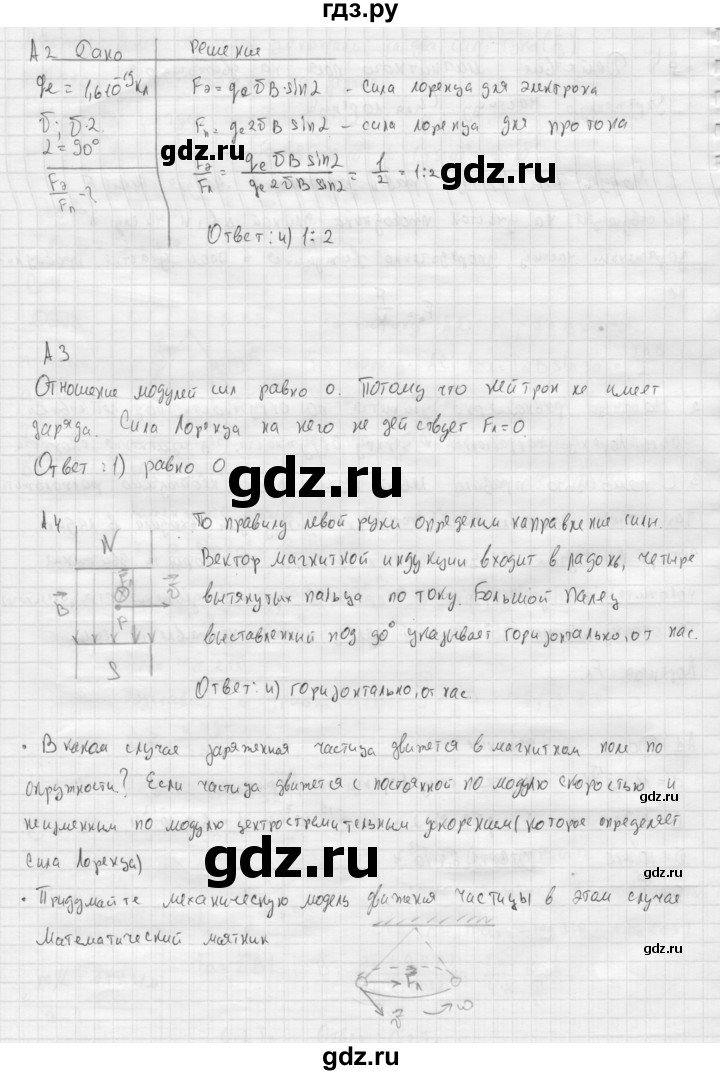 гдз.ру
А2 Дано Решение
qe = 1,6·10^-19 Кл Fэ = qe υ B·sin α - сила Лоренца для электрона
υ; υ·2 Fп = qe 2υ B sin α - сила Лоренца для протона
α = 90° Fэ/Fп = qe υ B sin α / qe 2υ B sin α = 1/2 = 1:2
Fэ/Fп - ?
Ответ: 4) 1:2
А3
Отношение модулей сил равно 0. Потому что нейтрон не имеет
заряда. Сила Лоренца на него не действует Fл = 0.
Ответ: 1) равно 0
gdz.ru
А4 По правилу левой руки определим направление силы.
N
Вектор магнитной индукции входит в ладонь, четыре
B υ
вытянутых пальца по току. Большой палец
P
выставленный под 90° указывает горизонтально, от нас.
S
Ответ: 4) горизонтально, от нас
· В каком случае заряженная частица движется в магнитном поле по
окружности? Если частица движется с постоянной по модулю скоростью и
gdz.ru
неизменным по модулю центростремительным ускорением (которое определяет
сила Лоренца)
gdz.ru
· Придумайте механическую модель движения частицы в этом случае
Математический маятник
gdz.ru
Fл
υ ω
gdz.ru
gdz.ru